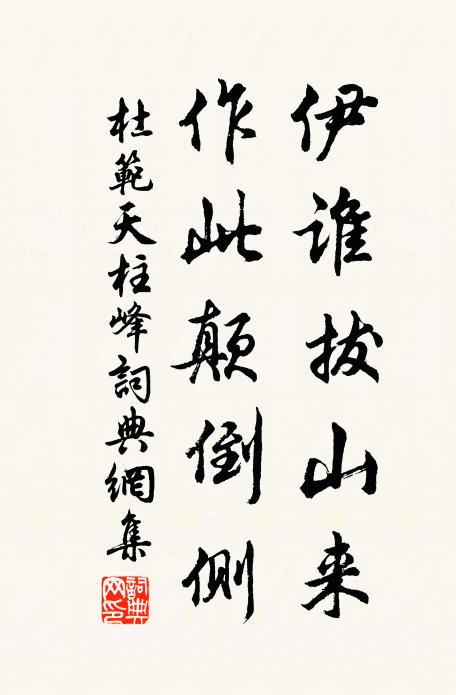 伊谁拔山来
作此颠倒侧
杜範天柱峰詞典網集
詞典网印